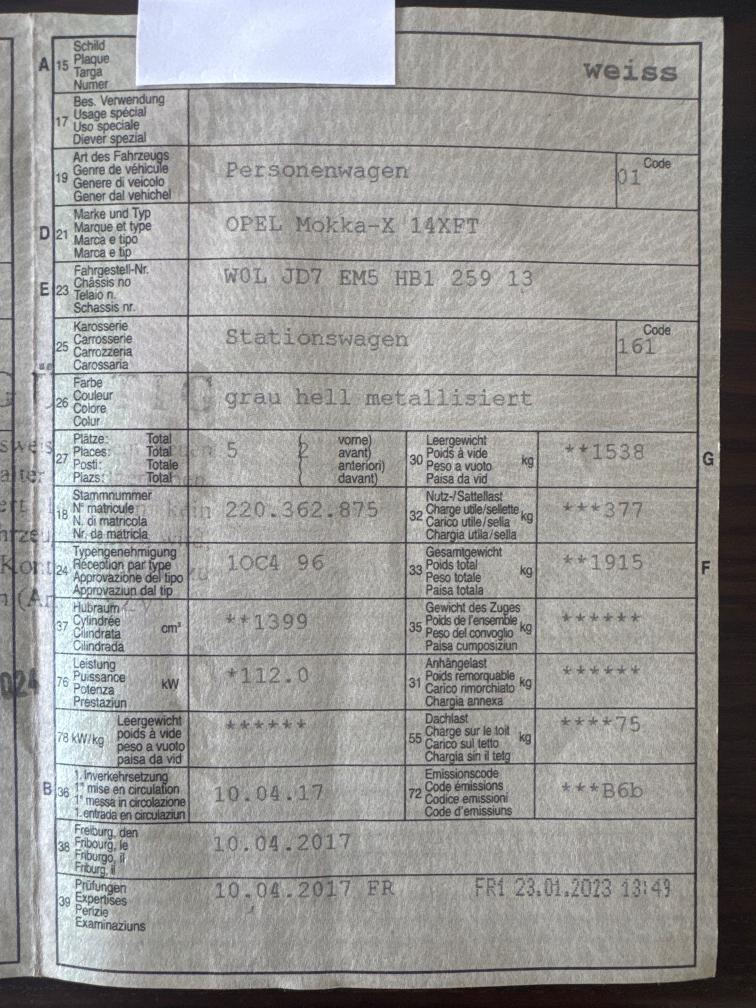 A 15 Schild
Plaque
Targa
Numer
weiss
17 Bes. Verwendung
Usage spécial
Uso speciale
Diever spezial
19 Art des Fahrzeugs
Genre de véhicule
Genere di veicolo
Gener dal vehichel
Personenwagen
Code
01
D 21 Marke und Typ
Marque et type
Marca e tipo
Marca e tip
OPEL Mokka-X 14XFT
E 23 Fahrgestell-Nr.
Châssis no
Telaio n.
Schassis nr.
W0L JD7 EM5 HB1 259 13
25 Karosserie
Carrosserie
Carrozzeria
Carossaria
Stationswagen
Code
161
26 Farbe
Couleur
Colore
Colur
grau hell metallisiert
27 Plätze: Total
Places: Total
Posti: Totale
Plazs: Total
5
2
vorne)
avant)
anteriori)
davant)
30 Leergewicht
Poids à vide
Peso a vuoto
Paisa da vid
kg
**1538
G
18 Stammnummer
N° matricule
N. di matricola
Nr. da matricla
220.362.875
32 Nutz-/Sattellast
Charge utile/sellette
Carico utile/sella
Chargia utila/sella
kg
***377
24 Typengenehmigung
Réception par type
Approvazione del tipo
Approvaziun dal tip
1OC4 96
33 Gesamtgewicht
Poids total
Peso totale
Paisa totala
kg
**1915
F
37 Hubraum
Cylindrée
Cilindrata
Cilindrada
cm³
**1399
35 Gewicht des Zuges
Poids de l'ensemble
Peso del convoglio
Paisa cumposiziun
kg
******
76 Leistung
Puissance
Potenza
Prestaziun
kW
*112.0
31 Anhängelast
Poids remorquable
Carico rimorchiato
Chargia annexa
kg
******
78 kW/kg
Leergewicht
poids à vide
peso a vuoto
paisa da vid
******
55 Dachlast
Charge sur le toit
Carico sul tetto
Chargia sin il tetg
kg
****75
B 36 1. Inverkehrsetzung
1re mise en circulation
1a messa in circolazione
1. entrada en circulaziun
10.04.17
72 Emissionscode
Code émissions
Codice emissioni
Code d'emissiuns
***B6b
38 Freiburg, den
Fribourg, le
Friburgo, il
Friburg, il
10.04.2017
39 Prüfungen
Expertises
Perizie
Examinaziuns
10.04.2017 FR
FR1 23.01.2023 13:49